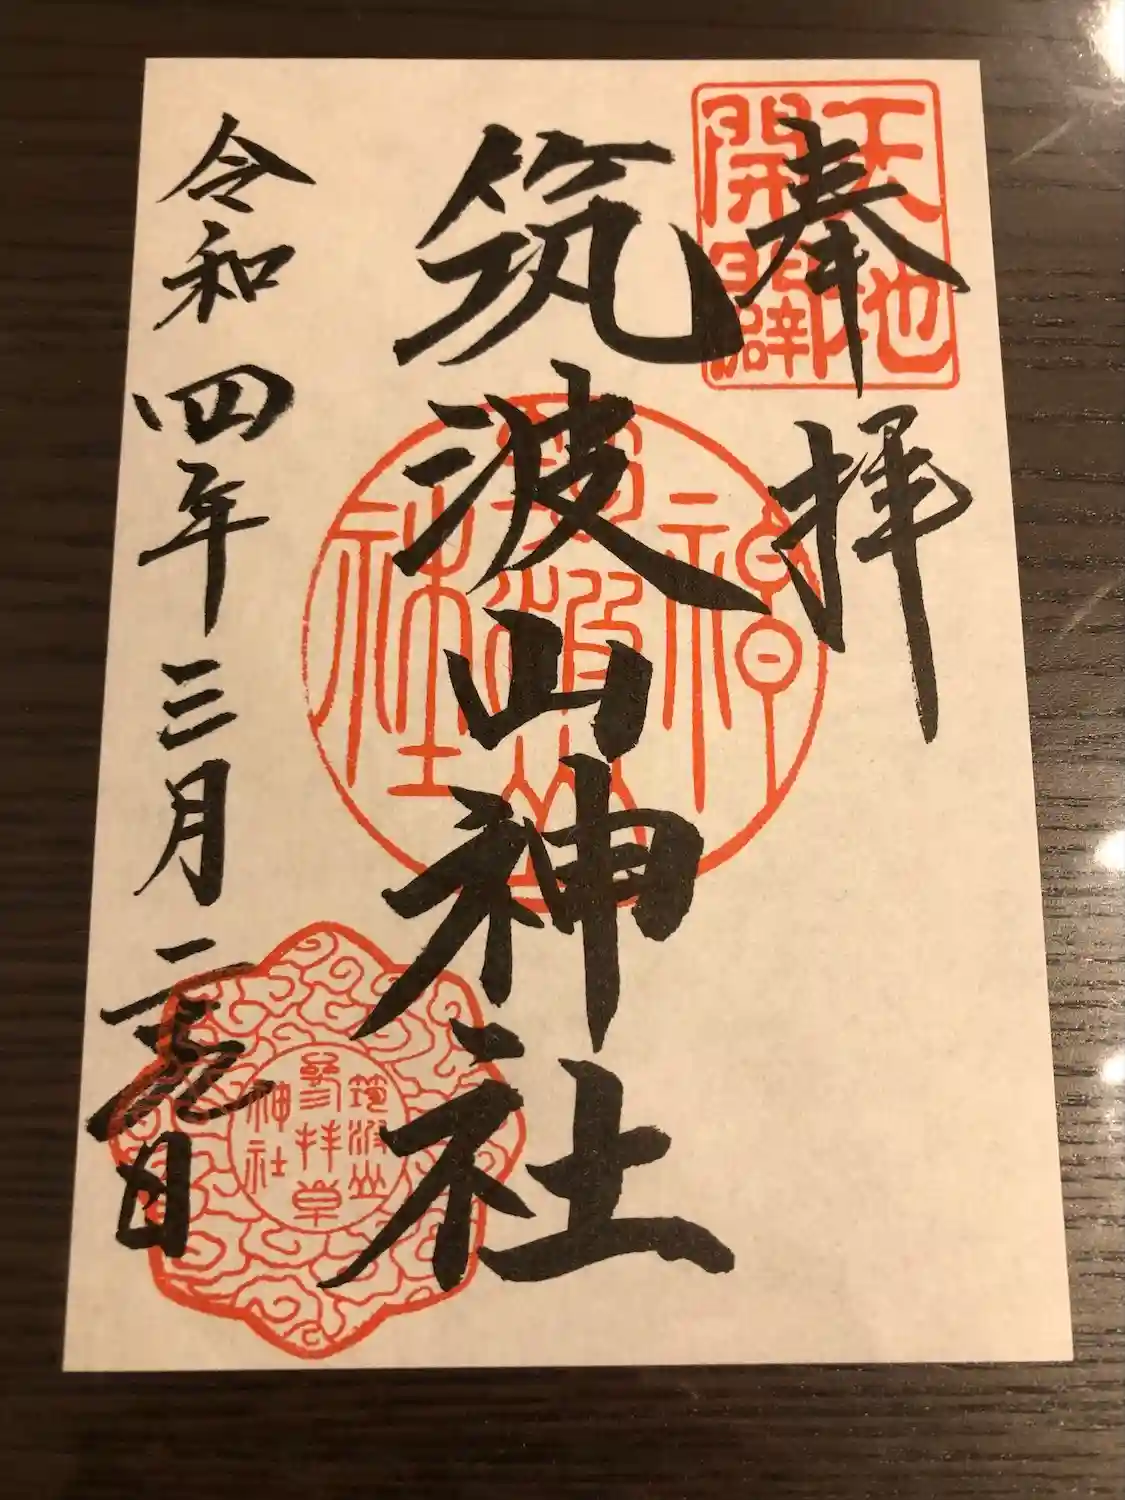 奉拝
天地
開闢
筑波山神社
筑波山
神社
令和四年三月二
日
筑波山
参拝章
神社